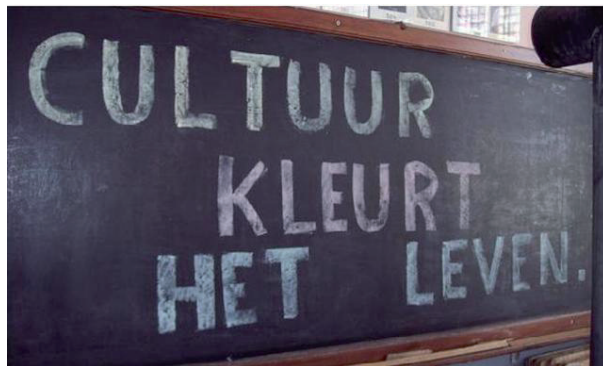 CULTUUR
KLEURT
HET LEVEN.